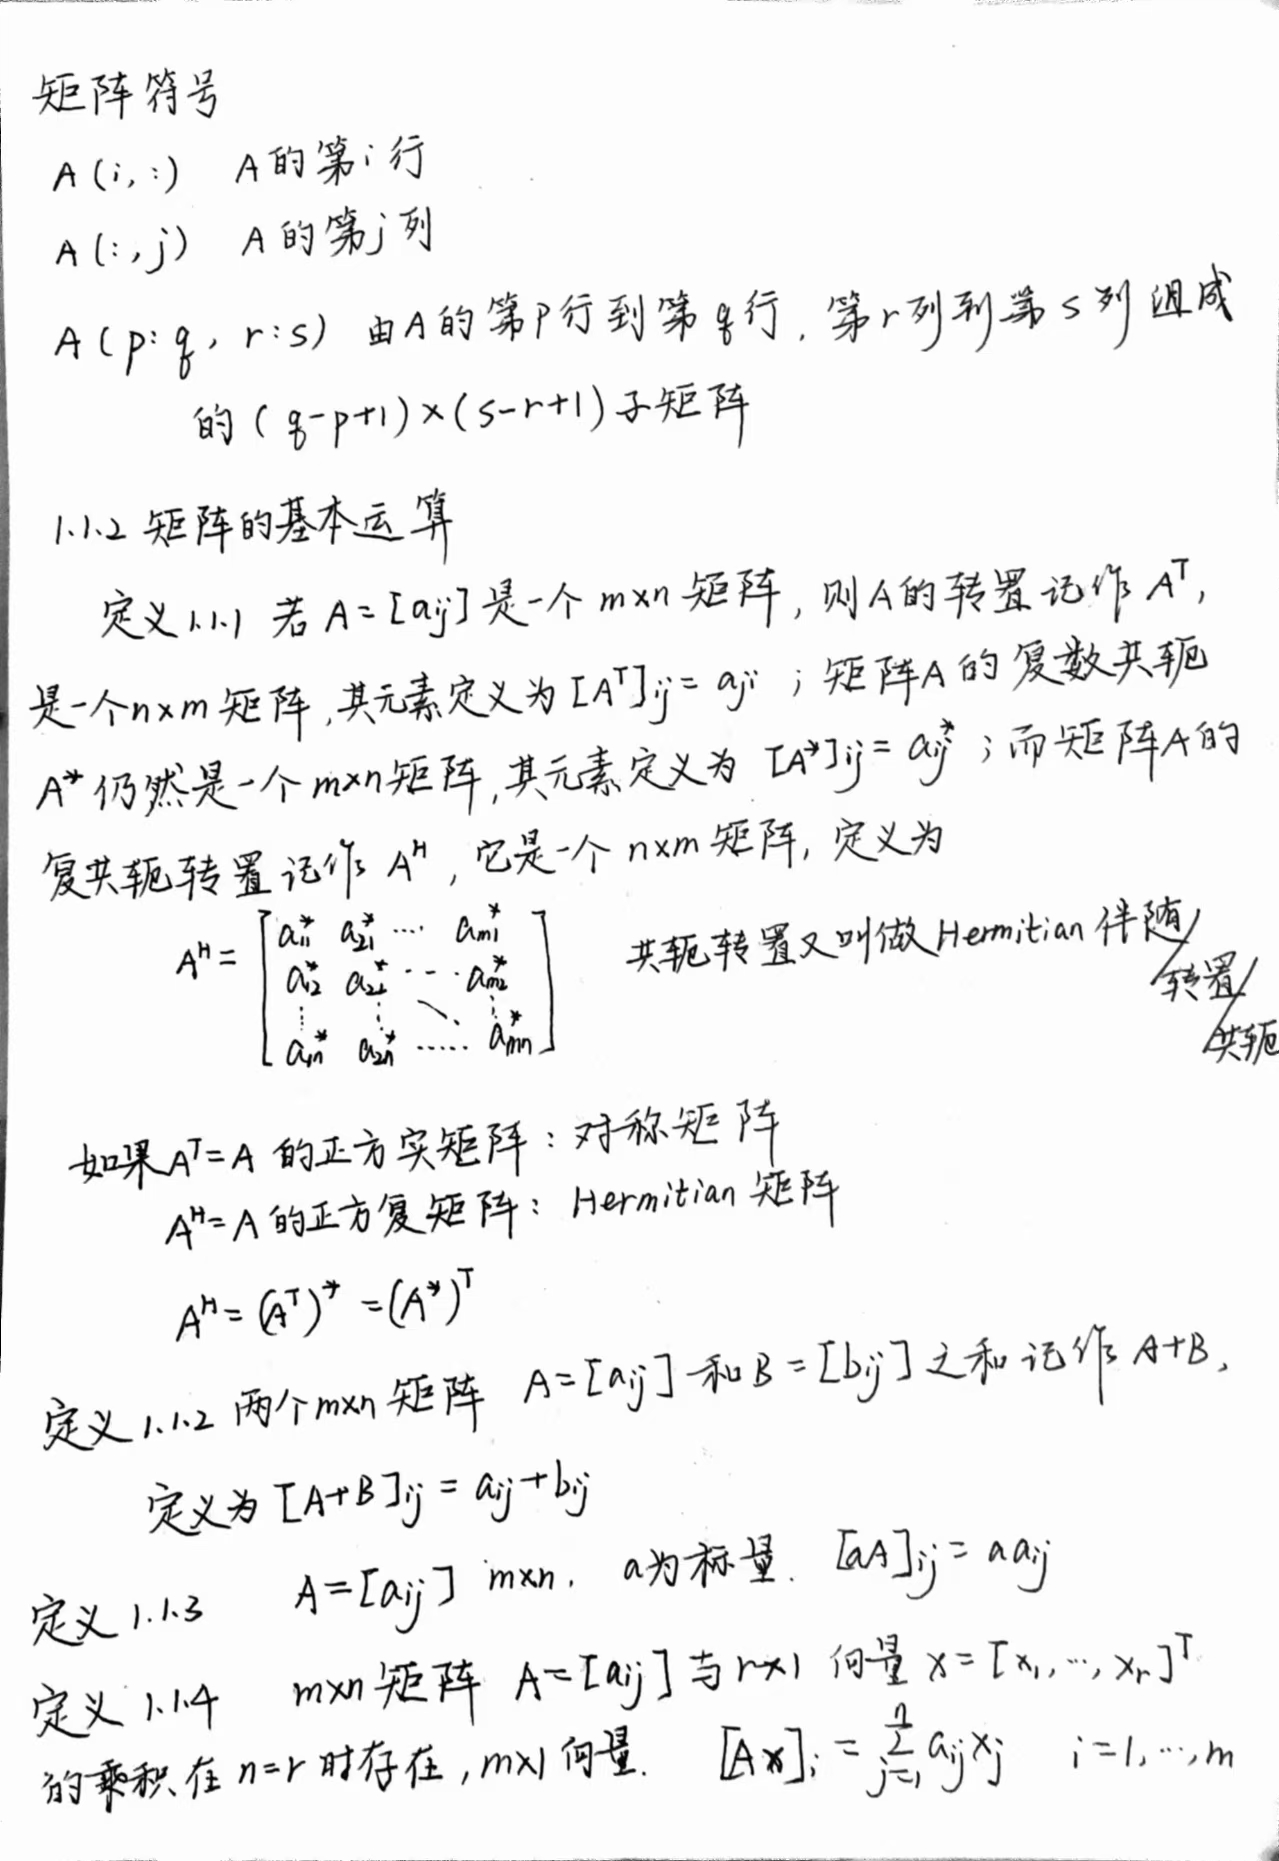 矩阵符号
A(i,:) A的第i行
A(:,j) A的第j列
A(p:q, r:s) 由A的第p行到第q行,第r列到第s列组成
的(q-p+1)×(s-r+1)子矩阵
1.1.2 矩阵的基本运算
定义1.1.1 若A=[aij]是一个m×n矩阵,则A的转置记作Aᵀ,
是一个n×m矩阵,其元素定义为[Aᵀ]ij=aji;矩阵A的复数共轭
A* 仍然是一个m×n矩阵,其元素定义为 [A*]ij=aij*;而矩阵A的
复共轭转置记作Aᴴ,它是一个n×m矩阵,定义为
Aᴴ= [a11* a21* ... am1*
a12* a22* ... am2*
⋮ ⋮ ⋱ ⋮
a1n* a2n* ...... amn*]
共轭转置又叫做Hermitian伴随/
转置/
共轭
如果Aᵀ=A 的正方实矩阵:对称矩阵
Aᴴ=A的正方复矩阵:Hermitian矩阵
Aᴴ=(Aᵀ)*=(A*)ᵀ
定义1.1.2 两个m×n矩阵 A=[aij]和B=[bij]之和记作A+B,
定义为[A+B]ij=aij+bij
定义1.1.3 A=[aij] m×n, a为标量. [aA]ij=aaij
定义1.1.4 m×n矩阵 A=[aij]与r×1 向量x=[x1,...,xr]ᵀ
的乘积在n=r时存在,m×1向量. [Ax]i=∑ⁿj=1 aijxj i=1,...,m